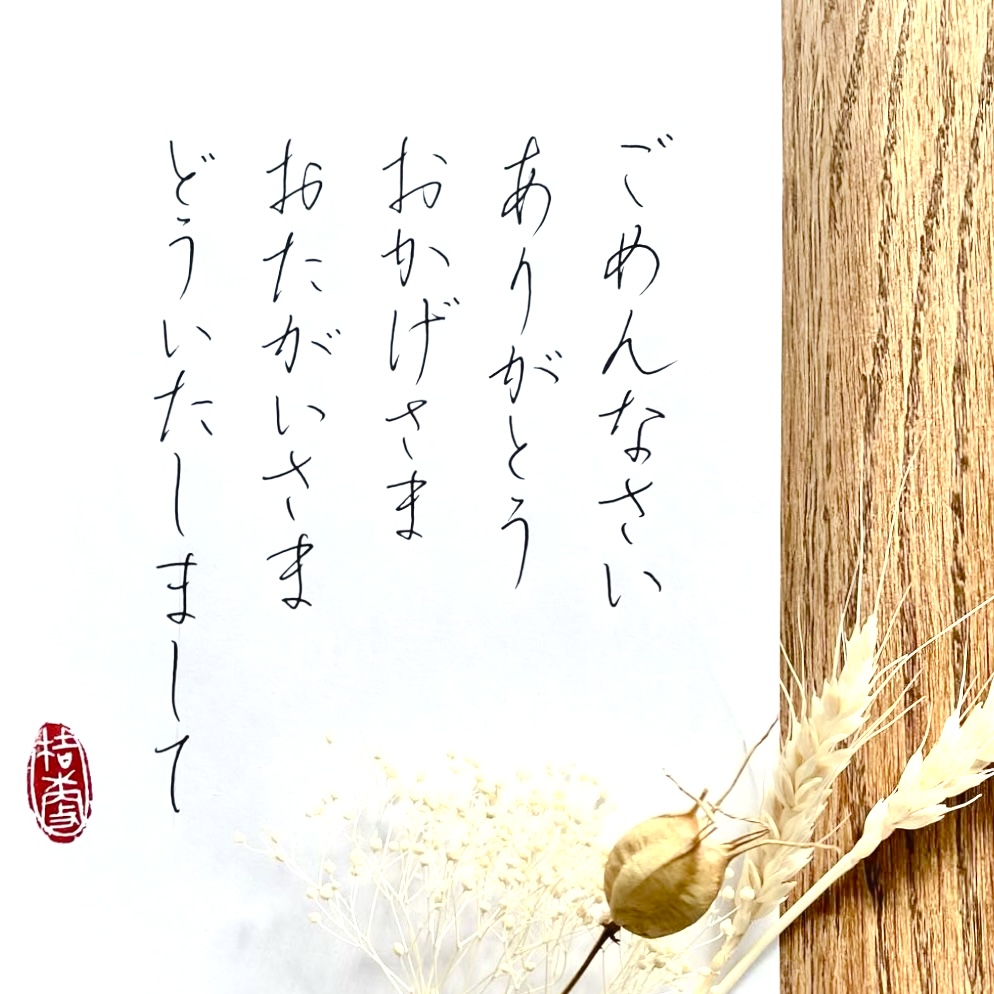 ごめんなさい
ありがとう
おかげさま
おたがいさま
どういたしまして